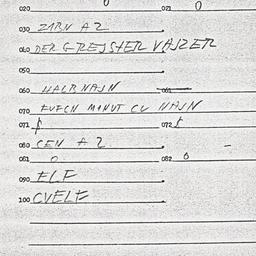 020 0 021 0
030 ZIBN A 2
040 DER GREJSTER VAJZER
050
060 HALB NAJN 061
070 FUFCN MANUT CU NAJN
071 072
080 CEN A 2 -
081 0 082 0
090 ELF
100 CVELF